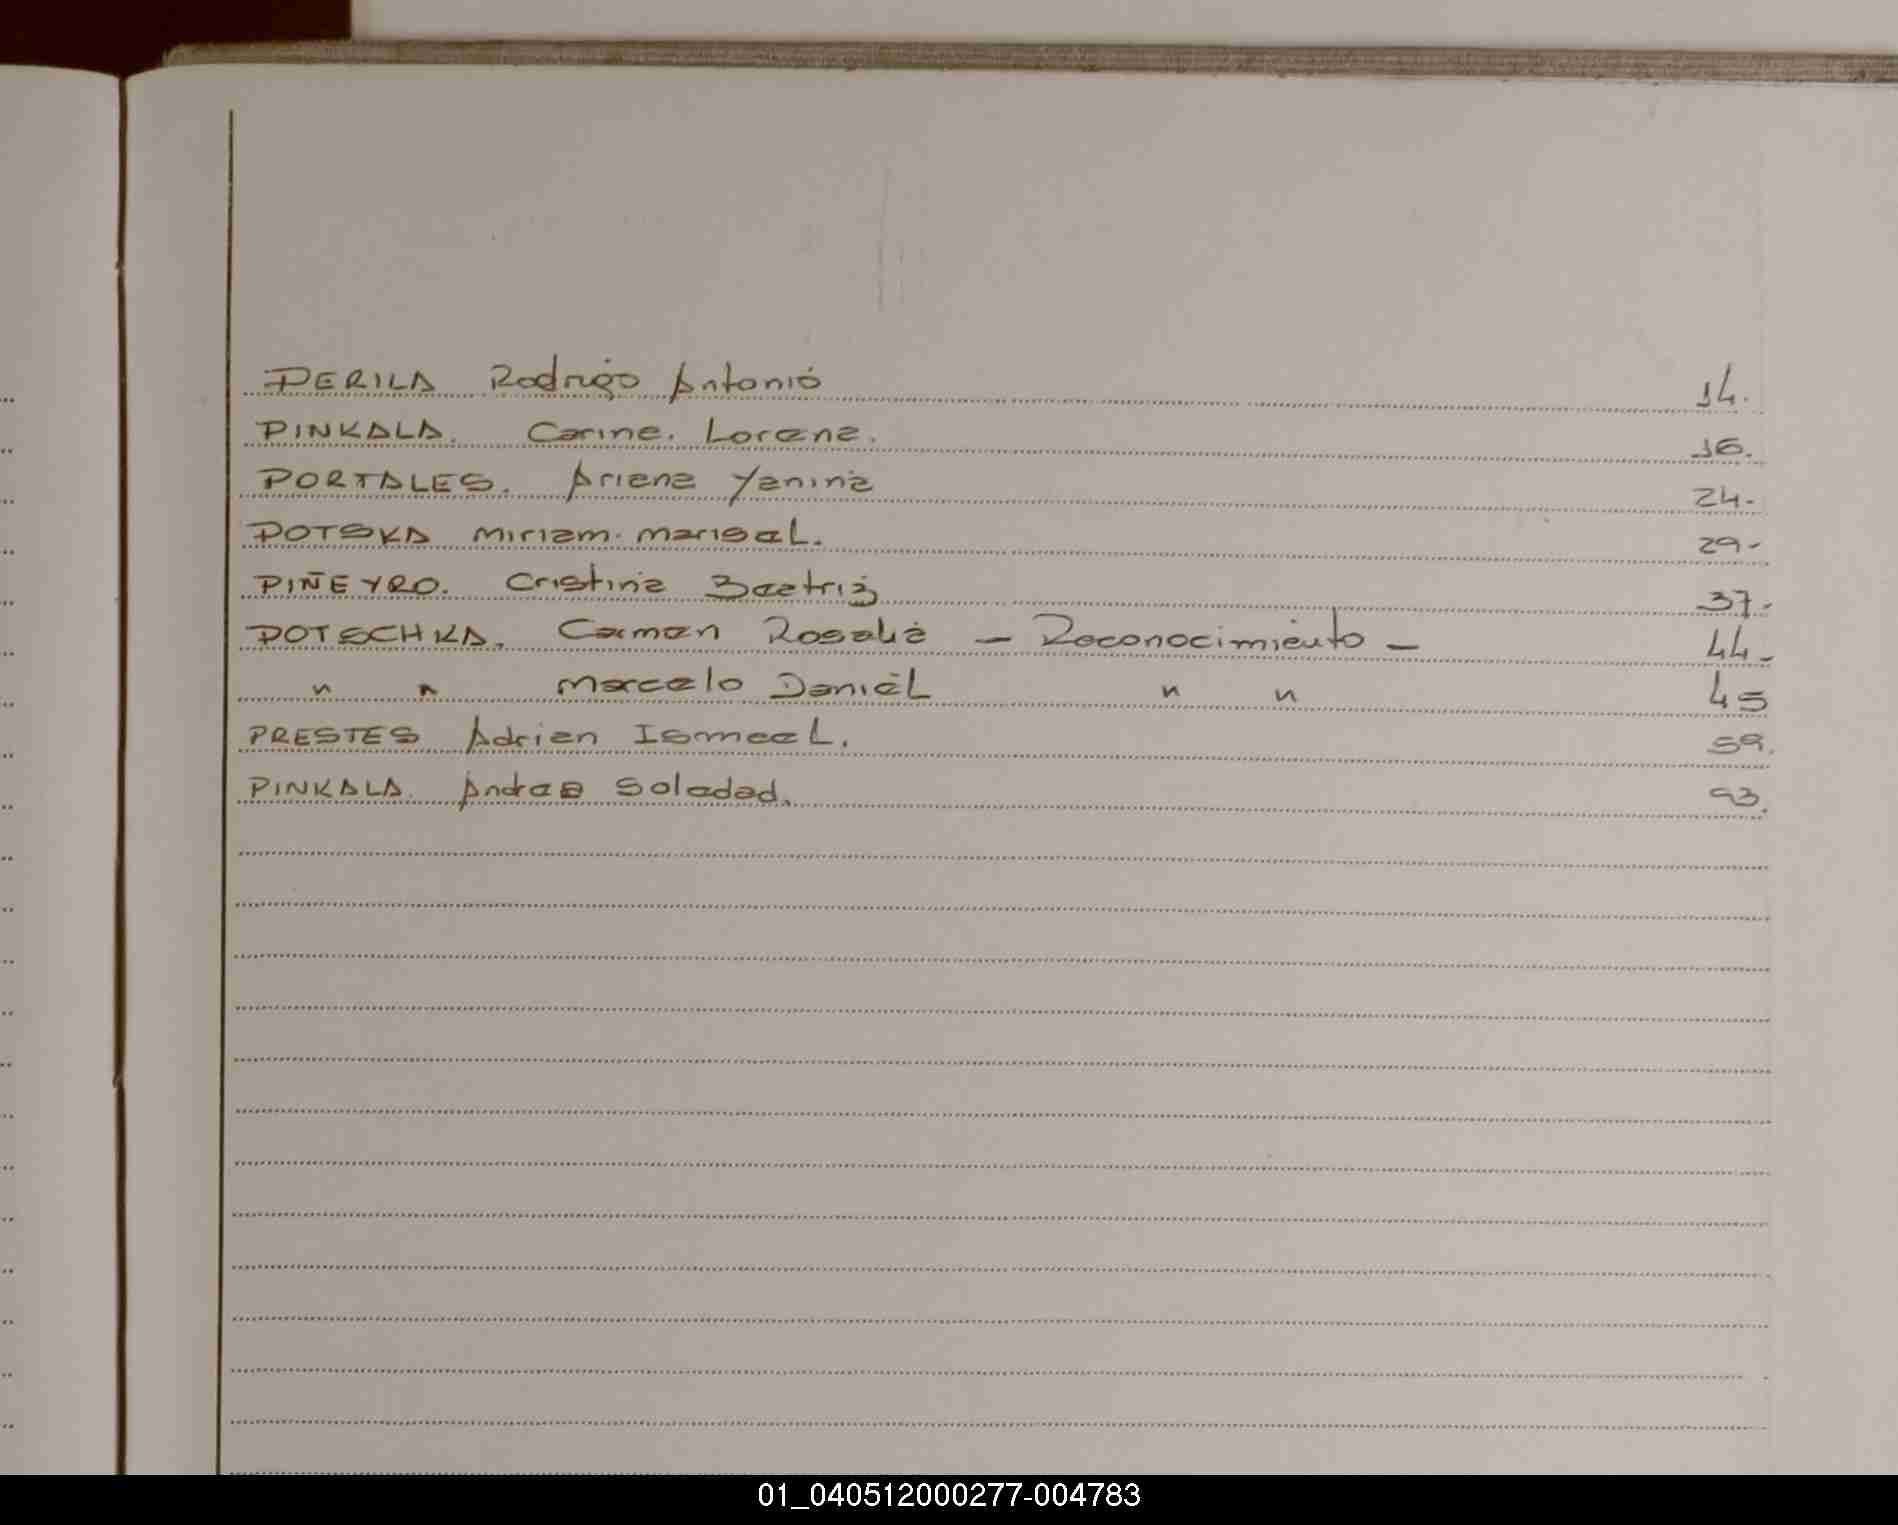 PERILA Rodrigo Antonio 14.
PINKALA. Carina. Lorena. 16.
PORTALES. Ariana Yanina 24.
POTSKA Miriam. Marisal. 29-
PIÑEYRO. Cristina Beatriz 37.
POTSCHKA. Carmen Rosalia - Reconocimiento - 44-
" " Marcelo Daniel " " 45
PRESTES Adrian Ismael. 59.
PINKALA. Andrea Soledad. 93.
01_040512000277-004783